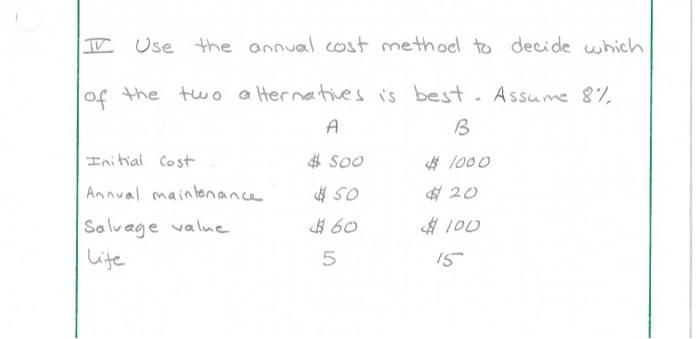 IV Use the annual cost method to decide which
of the two alternatives is best. Assume 8%.
A B
Initial cost $ 500 $ 1000
Annual maintenance $ 50 $ 20
Salvage value $ 60 $ 100
life 5 15